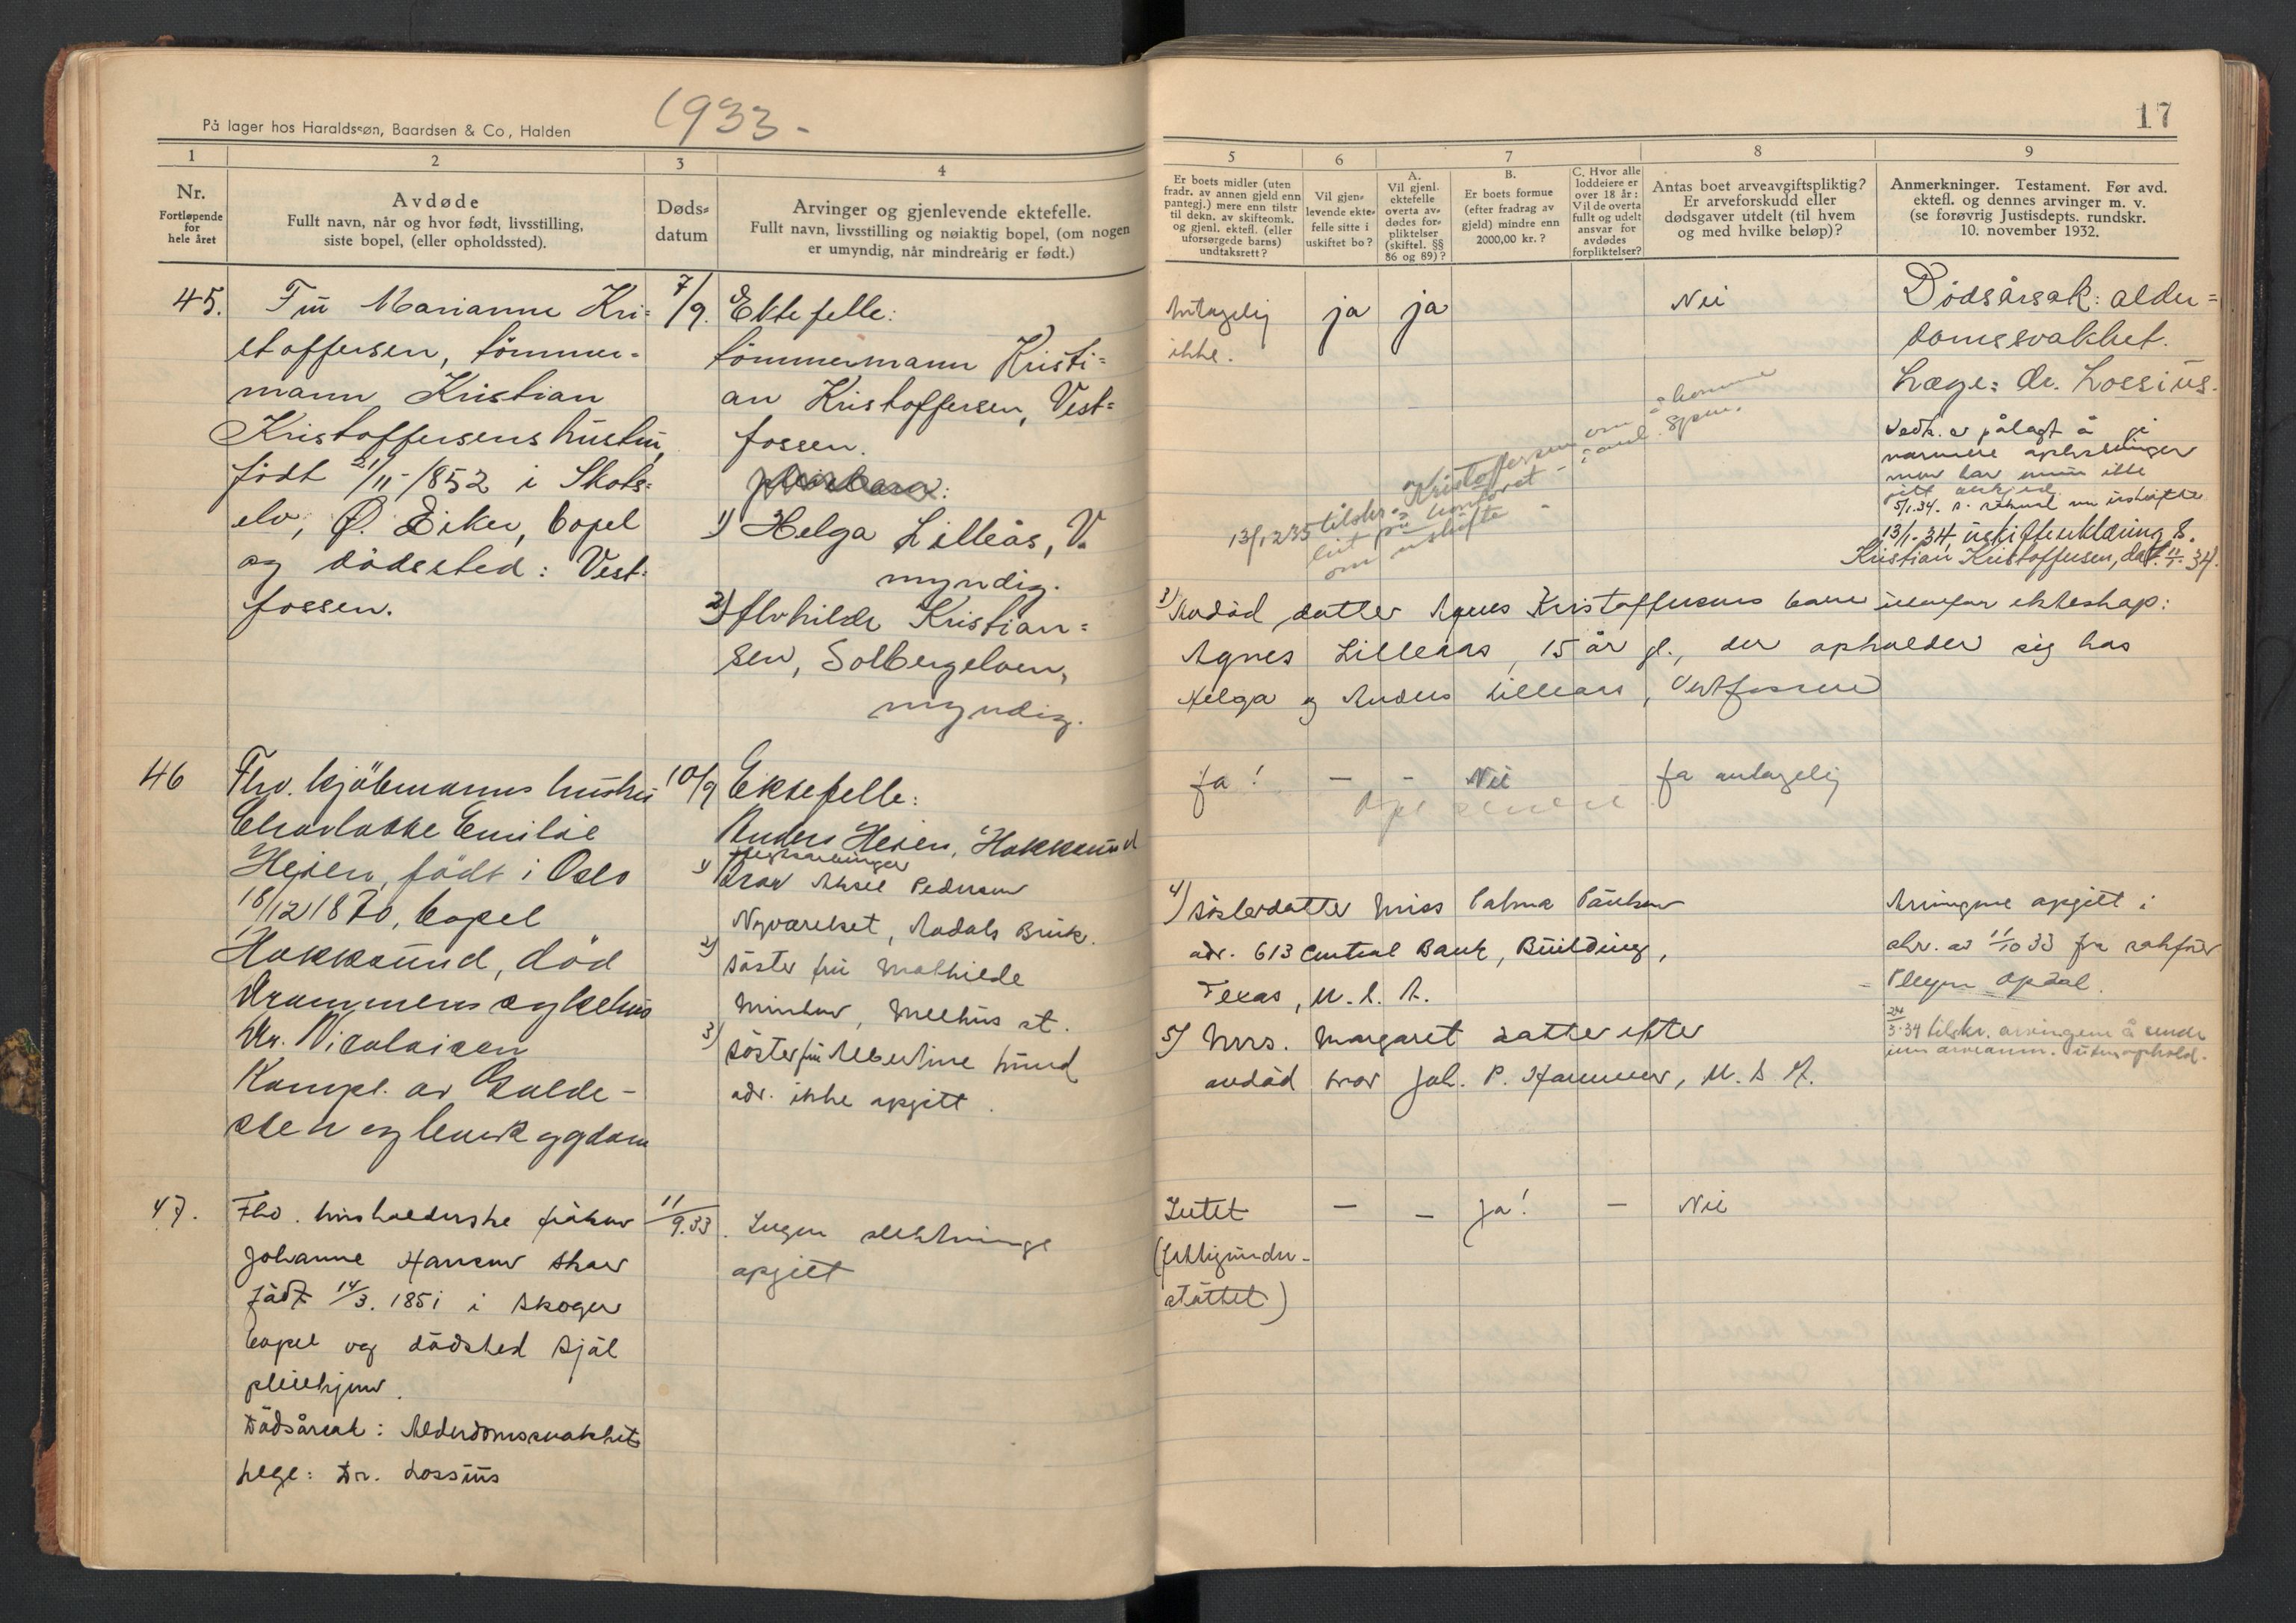 På lager hos Haraldssøn, Baardsen & Co, Halden
1933-
17
1
2
3
4
Nr.
Fortløpende
for
hele året
Avdøde
Fullt navn, når og hvor født, livsstilling,
siste bopel, (eller opholdssted).
Døds-
datum
Arvinger og gjenlevende ektefelle.
Fullt navn, livsstilling og nøiaktig bopel, (om nogen
er umyndig, når mindreårig er født.)
5
6
7
8
9
Er boets midler (uten
fradr. av annen gjeld enn
pantegj.) mere enn tilstr
til dekn. av skifteomk.
og gjenl. ektefl. (eller
uforsørgede barns)
undtaksrett?
Vil gjen-
levende ekte-
felle sitte i
uskiftet bo?
A.
Vil gjenl.
ektefelle
overta av-
dødes for-
pliktelser
(skiftel. §§
86 og 89)?
B.
Er boets formue
(efter fradrag av
gjeld) mindre enn
2000,00 kr.?
C. Hvor alle
loddeiere er
over 18 år:
Vil de overta
fullt og udelt
ansvar for
avdødes
forpliktelser?
Antas boet arveavgiftspliktig?
Er arveforskudd eller
dødsgaver utdelt (til hvem
og med hvilke beløp)?
Anmerkninger. Testament. Før avd.
ektefl. og dennes arvinger m. v.
(se forøvrig Justisdepts. rundskr.
10. november 1932.
45.
Fru Marianne Kri=
stoffersen, tömmer=
mann Kristian
Kristoffersens hustru,
født 21/11-1852 i Skots=
elv, Ø. Eiker, bopel
og dödssted: Vest-
fossen.
7/9.
Ektefelle:
tömmermann Kristi=
an Kristoffersen, Vest=
fossen.
1) Helga Lilleås, V.
myndig.
2) Alvhilde Kristian=
sen, Solbergelven,
myndig.
Antagelig
ikke.
ja
ja
Nei
Dödsårsak: alder=
domssvakhet.
Læge: Dr. Lossius.
Vedk. er pålagt å gi
nærmere oplysninger
men har ennu ikke
5/1.34.
13/1-34, uskifteerklæring f.
Kristian Kristoffersen, dat. 11/1-34.
13/12 35 tilskr. Kristoffersen om å komme
på kontoret
om uskifte
3) Avdöd datter Agnes Kristoffersens barn utenfor ekteskap:
Agnes Lilleaas, 15 år gl., der opholder sig hos
Helga og Anders Lilleaas, Vestfossen
46
Fhv. kjöbmanns hustru
Charlotte Emilie
Heien, født i Oslo
18/12 1870, bopel
Hokksund, död
Drammens sykehus
Dr. Nicolaisen
Kompl. av Galde-
sten og
10/9
Ektefelle:
Anders Heien, Hokksund
1) Bror Aksel Pedersen
Nyværket, Aadals Bruk.
2) söster fru Mathilde
Melhus st.
3) söster fru Albertine Lund
adr. ikke opgitt.
Ja!
-
-
Nei
Ja antagelig
4) Sösterdatter Miss Palma Paulsen
adr. 613 Central Bank, Building,
Texas, U. S. A.
5) Mrs. Margaret datter efter
avdöd bror Joh. P. Hammer, U. S. A.
Arvingene opgitt i
skr. av 11/10 33 fra sakfører
Opdal.
24/3-34 tilskr. arvingene å sende
inn arveanm. uten ophold.
47.
Fhv. husholderske fröken
Johanne Hansen Skov
født 14/3. 1851 i Skoger
bopel og dödssted Sjöl
pleiehjem.
Dödsårsak: Alderdomssvakhet
Lege: Dr. Lossius
11/9.33.
Ingen slektninge
opgitt
Intet
(fattigunder-
støttet)
-
-
Ja!
-
Nei